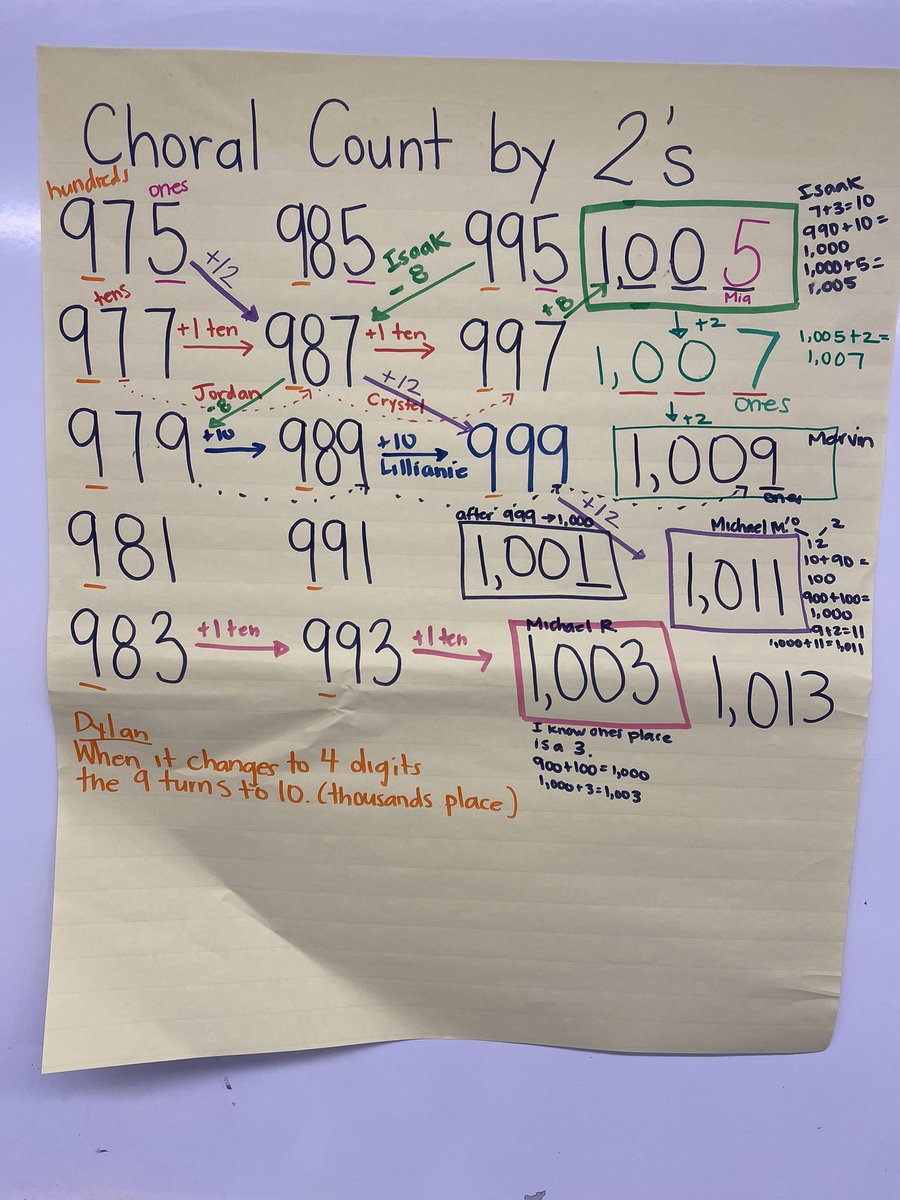 Choral Count by 2's
hundreds ones
975 985 995 1,005
Mia
+12
Isaak
-8
+8
Isaak
7+3=10
990+10=
1,000
1,000+5=
1,005
tens
977 +1 ten 987 +1 ten 997 1,007
+2
1,005+2=
1,007
ones
Jordan
-8
+12
Crystel
+2
979 +10 989 +10 999 1,009
Lillianie
Marvin
ones
after 999→1,000
+12
981 991 1,001 1,011
Michael M.
10 2
12
10+90=
100
900+100=
1,000
912=11
1,000+11=1,011
983 +1 ten 993 +1 ten 1,003 1,013
Michael R.
I know ones place
is a 3.
900+100=1,000
1,000+3=1,003
Dylan
When it changes to 4 digits
the 9 turns to 10. (thousands place)